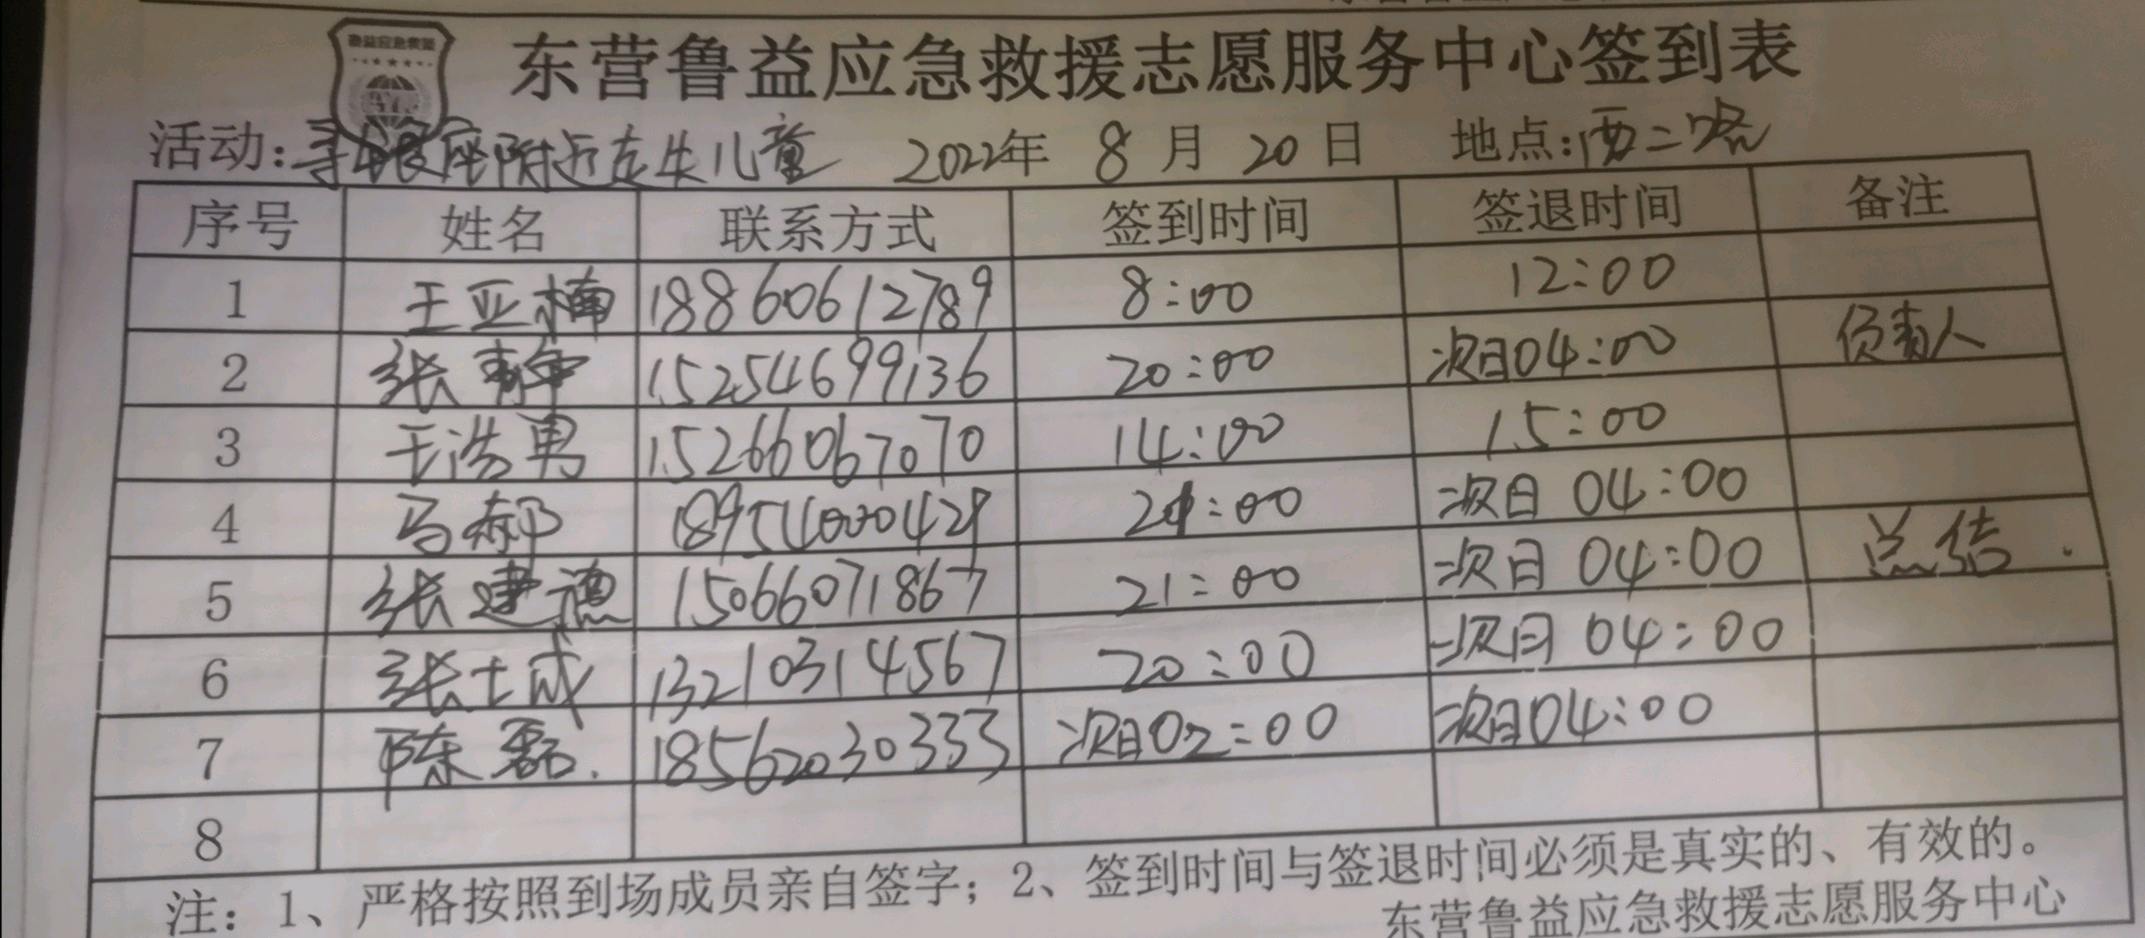 鲁益应急救援
东营鲁益应急救援志愿服务中心签到表
活动:寻银座附近走失儿童 2022年 8月20日 地点:西二路
序号 姓名 联系方式 签到时间 签退时间 备注
1 王亚楠 18860612789 8:00 12:00
2 张静 15254699136 20:00 次日04:00 负责人
3 王浩男 15266067070 14:00 15:00
4 马郝 18954000429 :00 次日 04:00
5 张建德 15066071867 21:00 次日 04:00 总结.
6 张士成 13210314567 20:00 次日 04:00
7 陈磊. 18562030333 次日02:00 次日04:00
8
注: 1、严格按照到场成员亲自签字; 2、签到时间与签退时间必须是真实的、有效的。
东营鲁益应急救援志愿服务中心